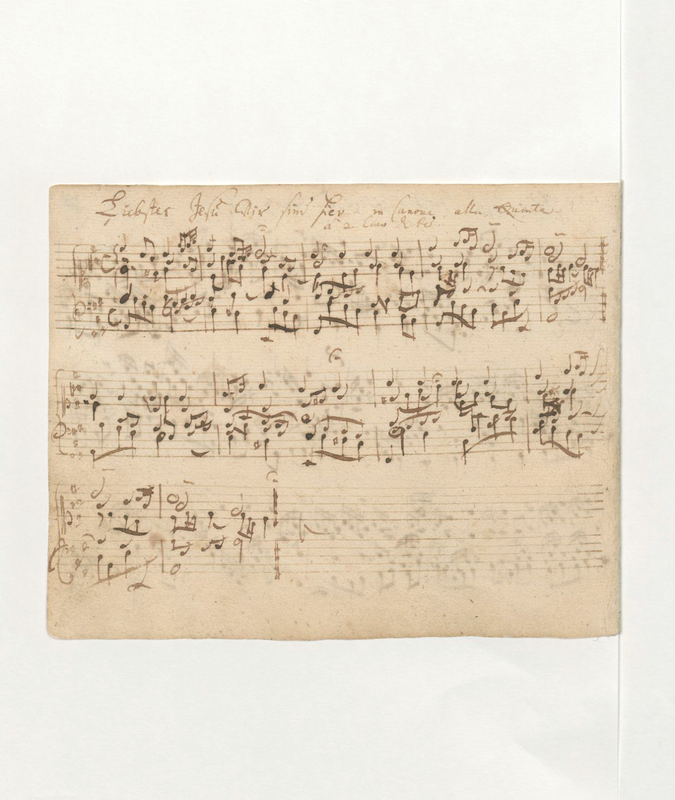 Liebster Jesu Wir sind hier in Canone alla Quinta
a 2 Clav. & Ped.